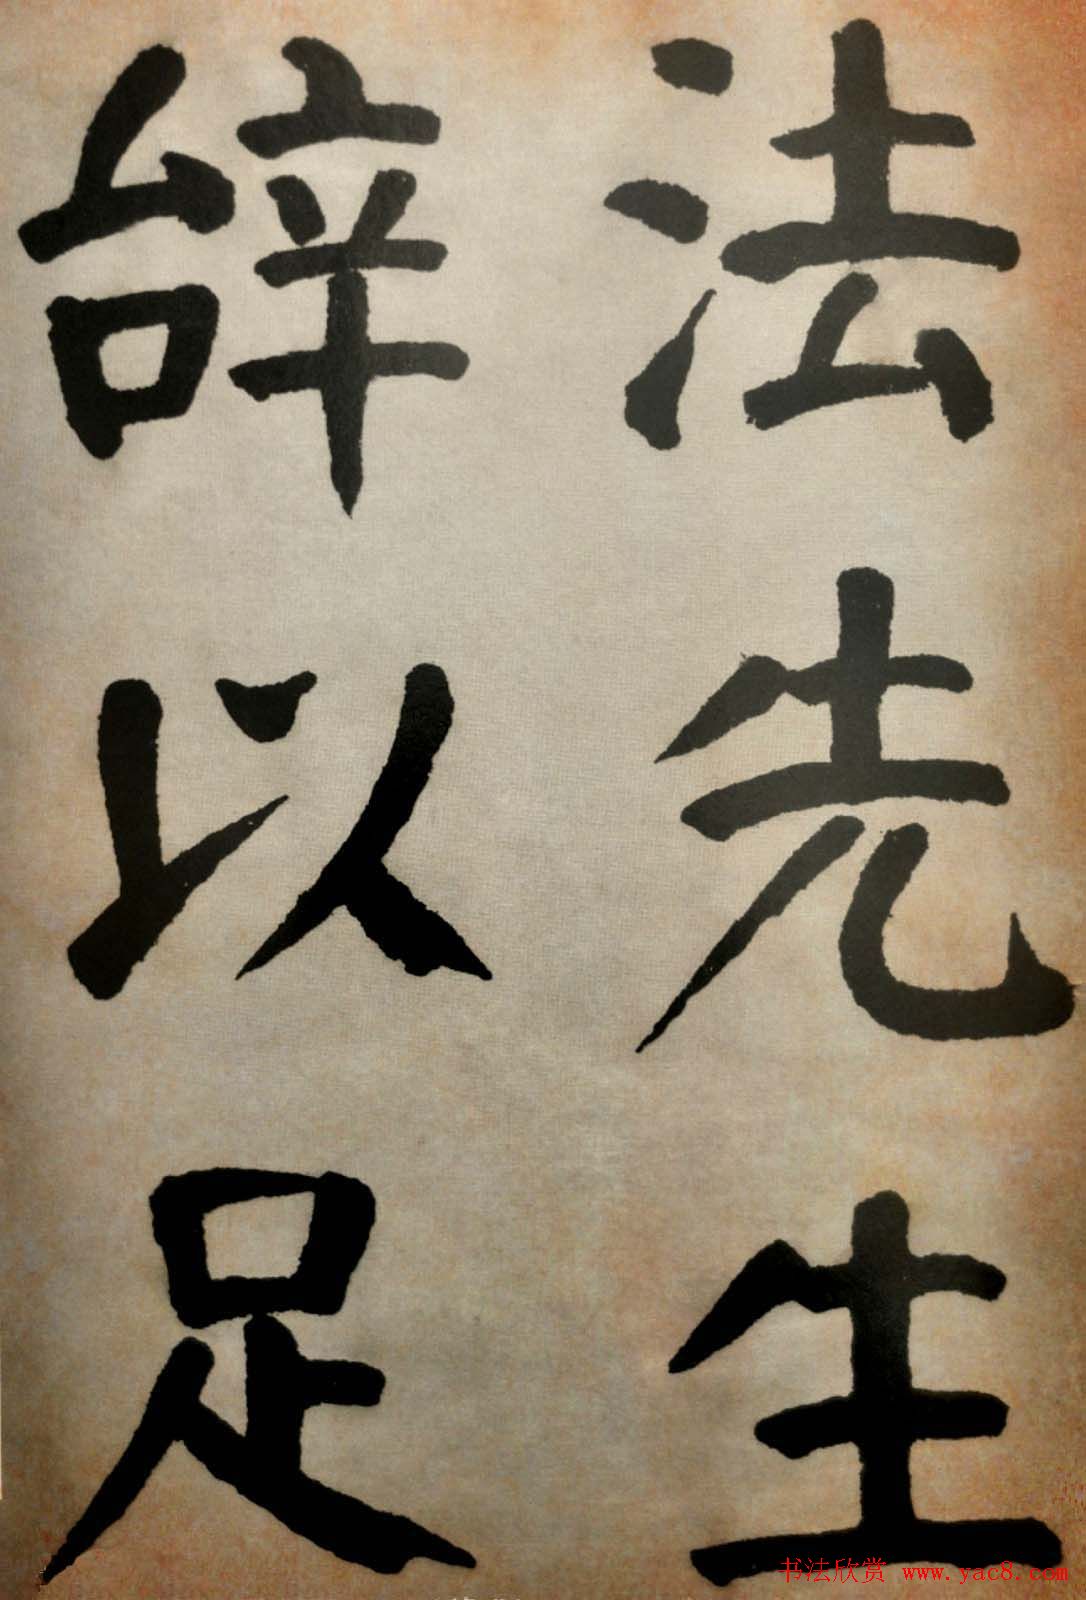 法先生
辝以足
书法欣赏 www.yac8.com